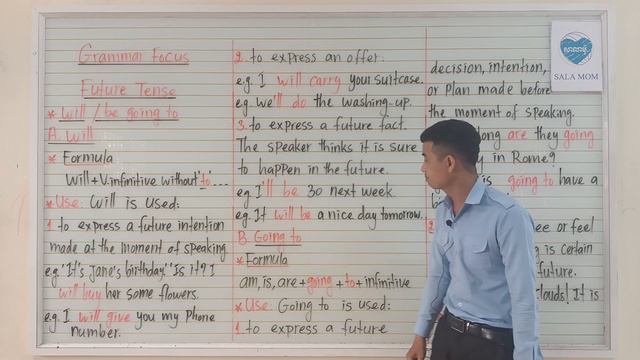 Grammar Focus
Future Tense
* Will / be going to
A. Will
* Formula
Will + V.infinitive without 'to'...
* Use: Will is used:
1. to express a future intention
made at the moment of speaking.
e.g. "It's Jane's birthday." "Is it? I
will buy her some flowers.
e.g. I will give you my phone
number.
2. to express an offer:
e.g. I will carry your suitcase.
e.g. We'll do the washing-up.
3. to express a future fact.
The speaker thinks it is sure
to happen in the future.
e.g. I'll be 30 next week.
e.g. It will be a nice day tomorrow.
B. Going to
* Formula
am, is, are + going + to + infinitive
* Use: Going to is used:
1. to express a future
decision, intention,
or plan made before
the moment of speaking.
are they going
in Rome?
is going to have a
ee or feel
is certain
future.
clouds! It is
សាលាម៉ុម
SALA MOM